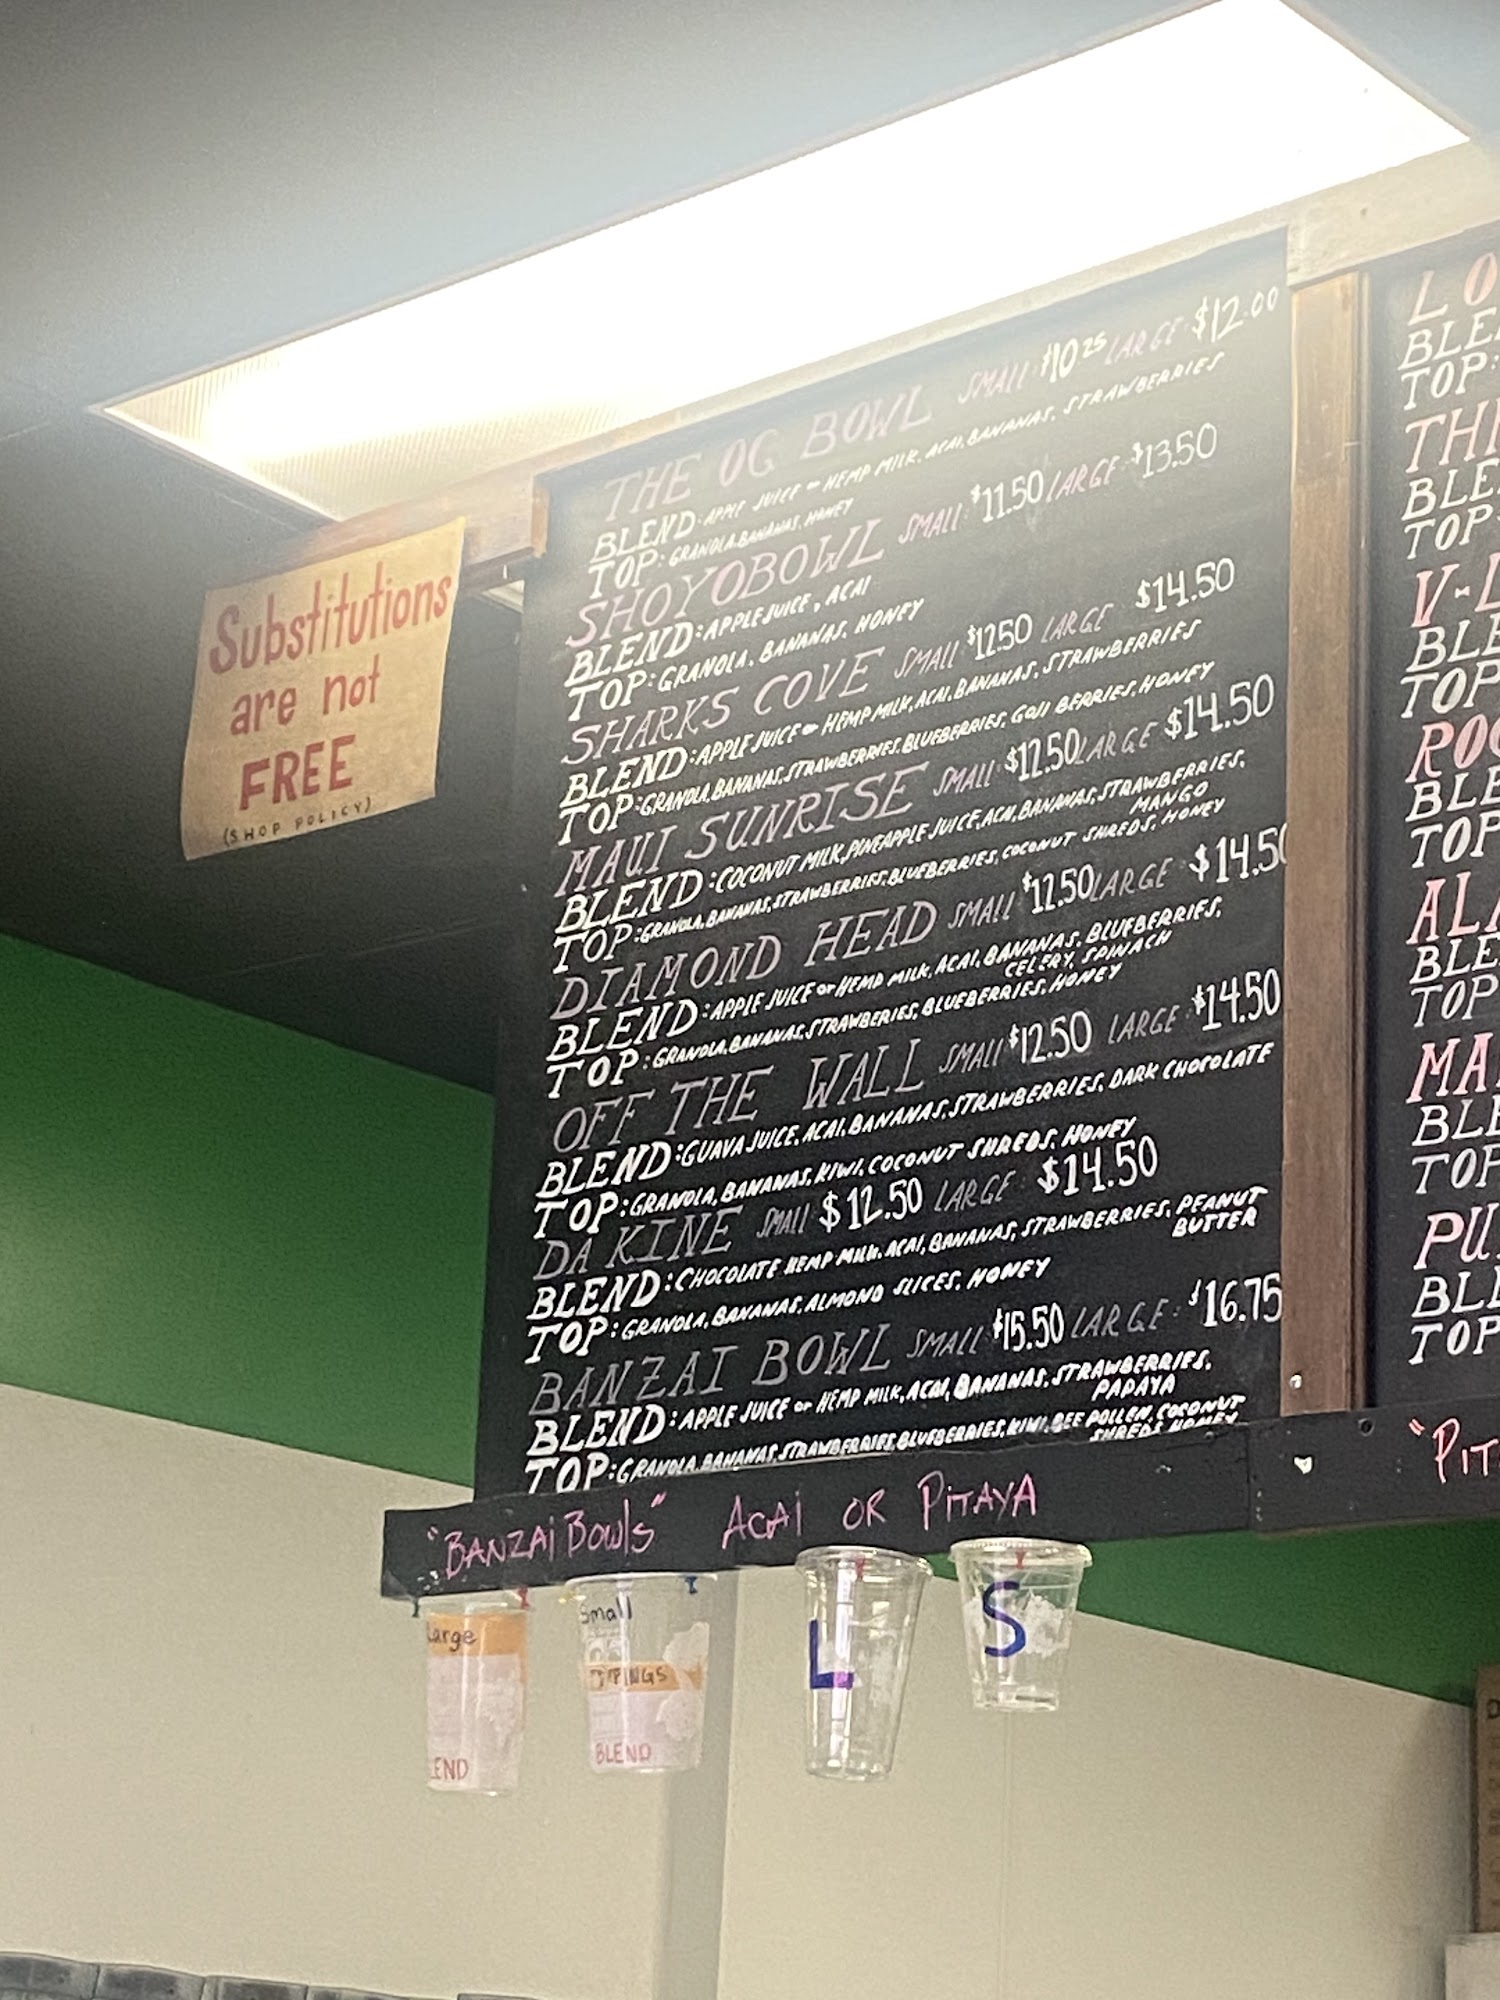 Substitutions
are not
FREE
(SHOP POLICY)
THE OG BOWL SMALL: $10.25 LARGE: $12.00
BLEND: APPLE JUICE or HEMP MILK, ACAI, BANANAS, STRAWBERRIES
TOP: GRANOLA, BANANAS, HONEY
SHOYOBOWL SMALL: $11.50 LARGE: $13.50
BLEND: APPLE JUICE, ACAI
TOP: GRANOLA, BANANAS, HONEY
SHARKS COVE SMALL $12.50 LARGE: $14.50
BLEND: APPLE JUICE or HEMP MILK, ACAI, BANANAS, STRAWBERRIES
TOP: GRANOLA, BANANAS, STRAWBERRIES, BLUEBERRIES, GOJI BERRIES, HONEY
MAUI SUNRISE SMALL: $12.50 LARGE $14.50
BLEND: COCONUT MILK, PINEAPPLE JUICE, ACAI, BANANAS, STRAWBERRIES,
MANGO
TOP: GRANOLA, BANANAS, STRAWBERRIES, BLUEBERRIES, COCONUT SHREDS, HONEY
DIAMOND HEAD SMALL $12.50 LARGE $14.50
BLEND: APPLE JUICE or HEMP MILK, ACAI, BANANAS, BLUEBERRIES,
CELERY, SPINACH
TOP: GRANOLA, BANANAS, STRAWBERIES, BLUEBERRIES, HONEY
OFF THE WALL SMALL $12.50 LARGE: $14.50
BLEND: GUAVA JUICE, ACAI, BANANAS, STRAWBERRIES, DARK CHOCOLATE
TOP: GRANOLA, BANANAS, KIWI, COCONUT SHREDS, HONEY
DA KINE SMALL $12.50 LARGE: $14.50
BLEND: CHOCOLATE HEMP MILK, ACAI, BANANAS, STRAWBERRIES, PEANUT
BUTTER
TOP: GRANOLA, BANANAS, ALMOND SLICES, HONEY
BANZAI BOWL SMALL $15.50 LARGE: $16.75
BLEND: APPLE JUICE or HEMP MILK, ACAI, BANANAS, STRAWBERRIES,
PAPAYA
TOP: GRANOLA, BANANAS, STRAWBERRIES, BLUEBERRIES, KIWI, BEE POLLEN, COCONUT
SHREDS, HONEY
"BANZAI BOWLS" ACAI OR PITAYA
Large
Small
TOPPINGS
BLEND
L
S
LO
BLE
TOP:
TH
BLE
TOP:
V-
BLE
TOP
RO
BLE
TOP
AL
BLE
TOP
MA
BLE
TOP
PU
BLE
TOP
"PIT